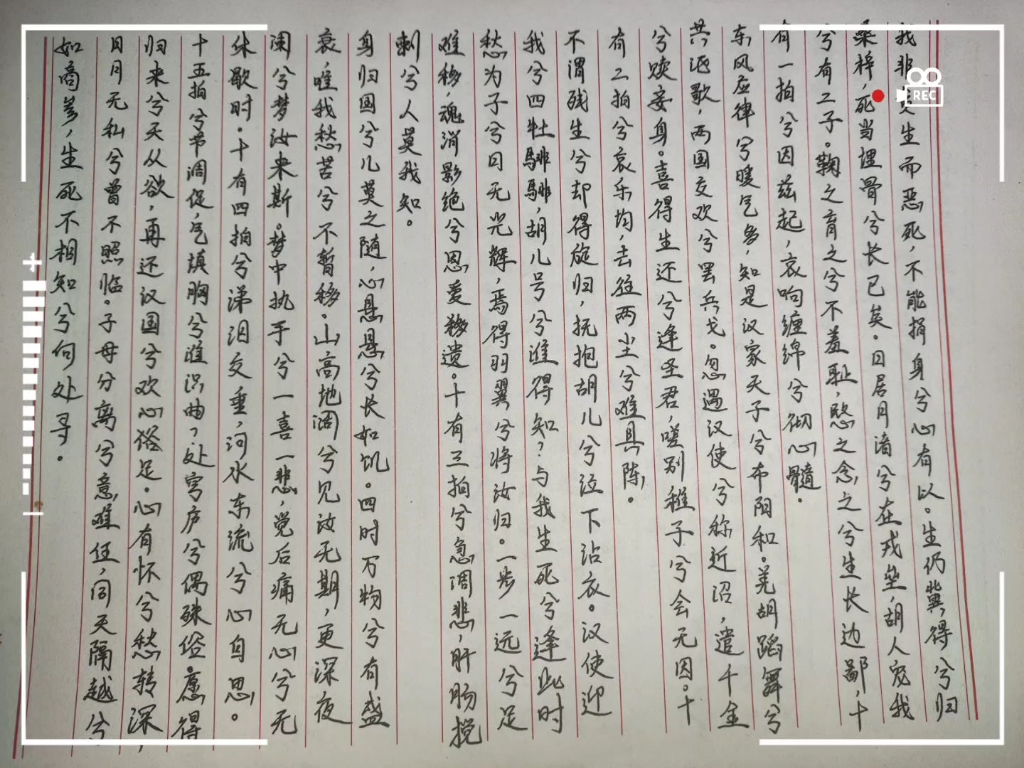 我非贪生而恶死，不能捐身兮心有以。生仍冀得兮归
桑梓，死当埋骨兮长已矣。日居月诸兮在戎垒，胡人宠我
兮有二子。鞠之育之兮不羞耻，愍之念之兮生长边鄙，十
有一拍兮因兹起，哀响缠绵兮彻心髓。
东风应律兮暖气多，知是汉家天子兮布阳和。羌胡蹈舞兮
共讴歌，两国交欢兮罢兵戈。忽遇汉使兮称近诏，遣千金
兮赎妾身。喜得生还兮逢圣君，嗟别稚子兮会无因。十
有二拍兮哀乐均，去往两尘兮难具陈。
不谓残生兮却得旋归，抚抱胡儿兮泣下沾衣。汉使迎
我兮四牡騑騑，胡儿号兮谁得知？与我生死兮逢此时
愁为子兮日无光辉，焉得羽翼兮将汝归。一步一远兮足
难移，魂消影绝兮恩爱移遗。十有三拍兮急调悲，肝肠搅
刺兮人莫我知。
身归国兮儿莫之随，心悬悬兮长如饥。四时万物兮有盛
衰，唯我愁苦兮不暂移。山高地阔兮见汝无期，更深夜
阑兮梦汝来斯。梦中执手兮一喜一悲，觉后痛无心兮无
休歇时。十有四拍兮涕泪交垂，河水东流兮心自思。
十五拍兮节调促，气填胸兮谁识曲？处穹庐兮偶殊俗。愿得
归来兮天从欲，再还汉国兮欢心俗足。心有怀兮愁转深，
日月无私兮曾不照临。子母分离兮意难任，同天隔越兮
如商参，生死不相知兮何处寻。
REC